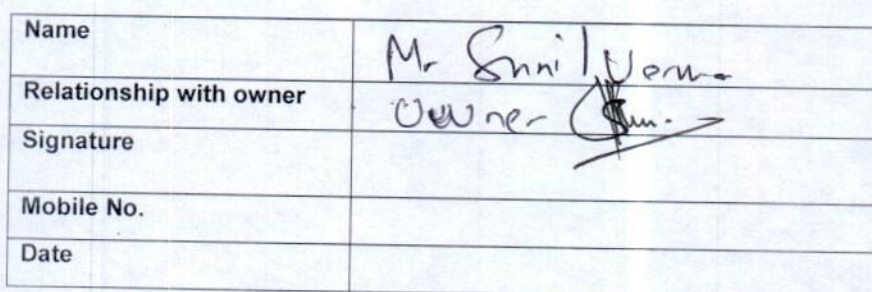 Name Mr Sunil Verma
Relationship with owner Owner
Signature
Mobile No.
Date